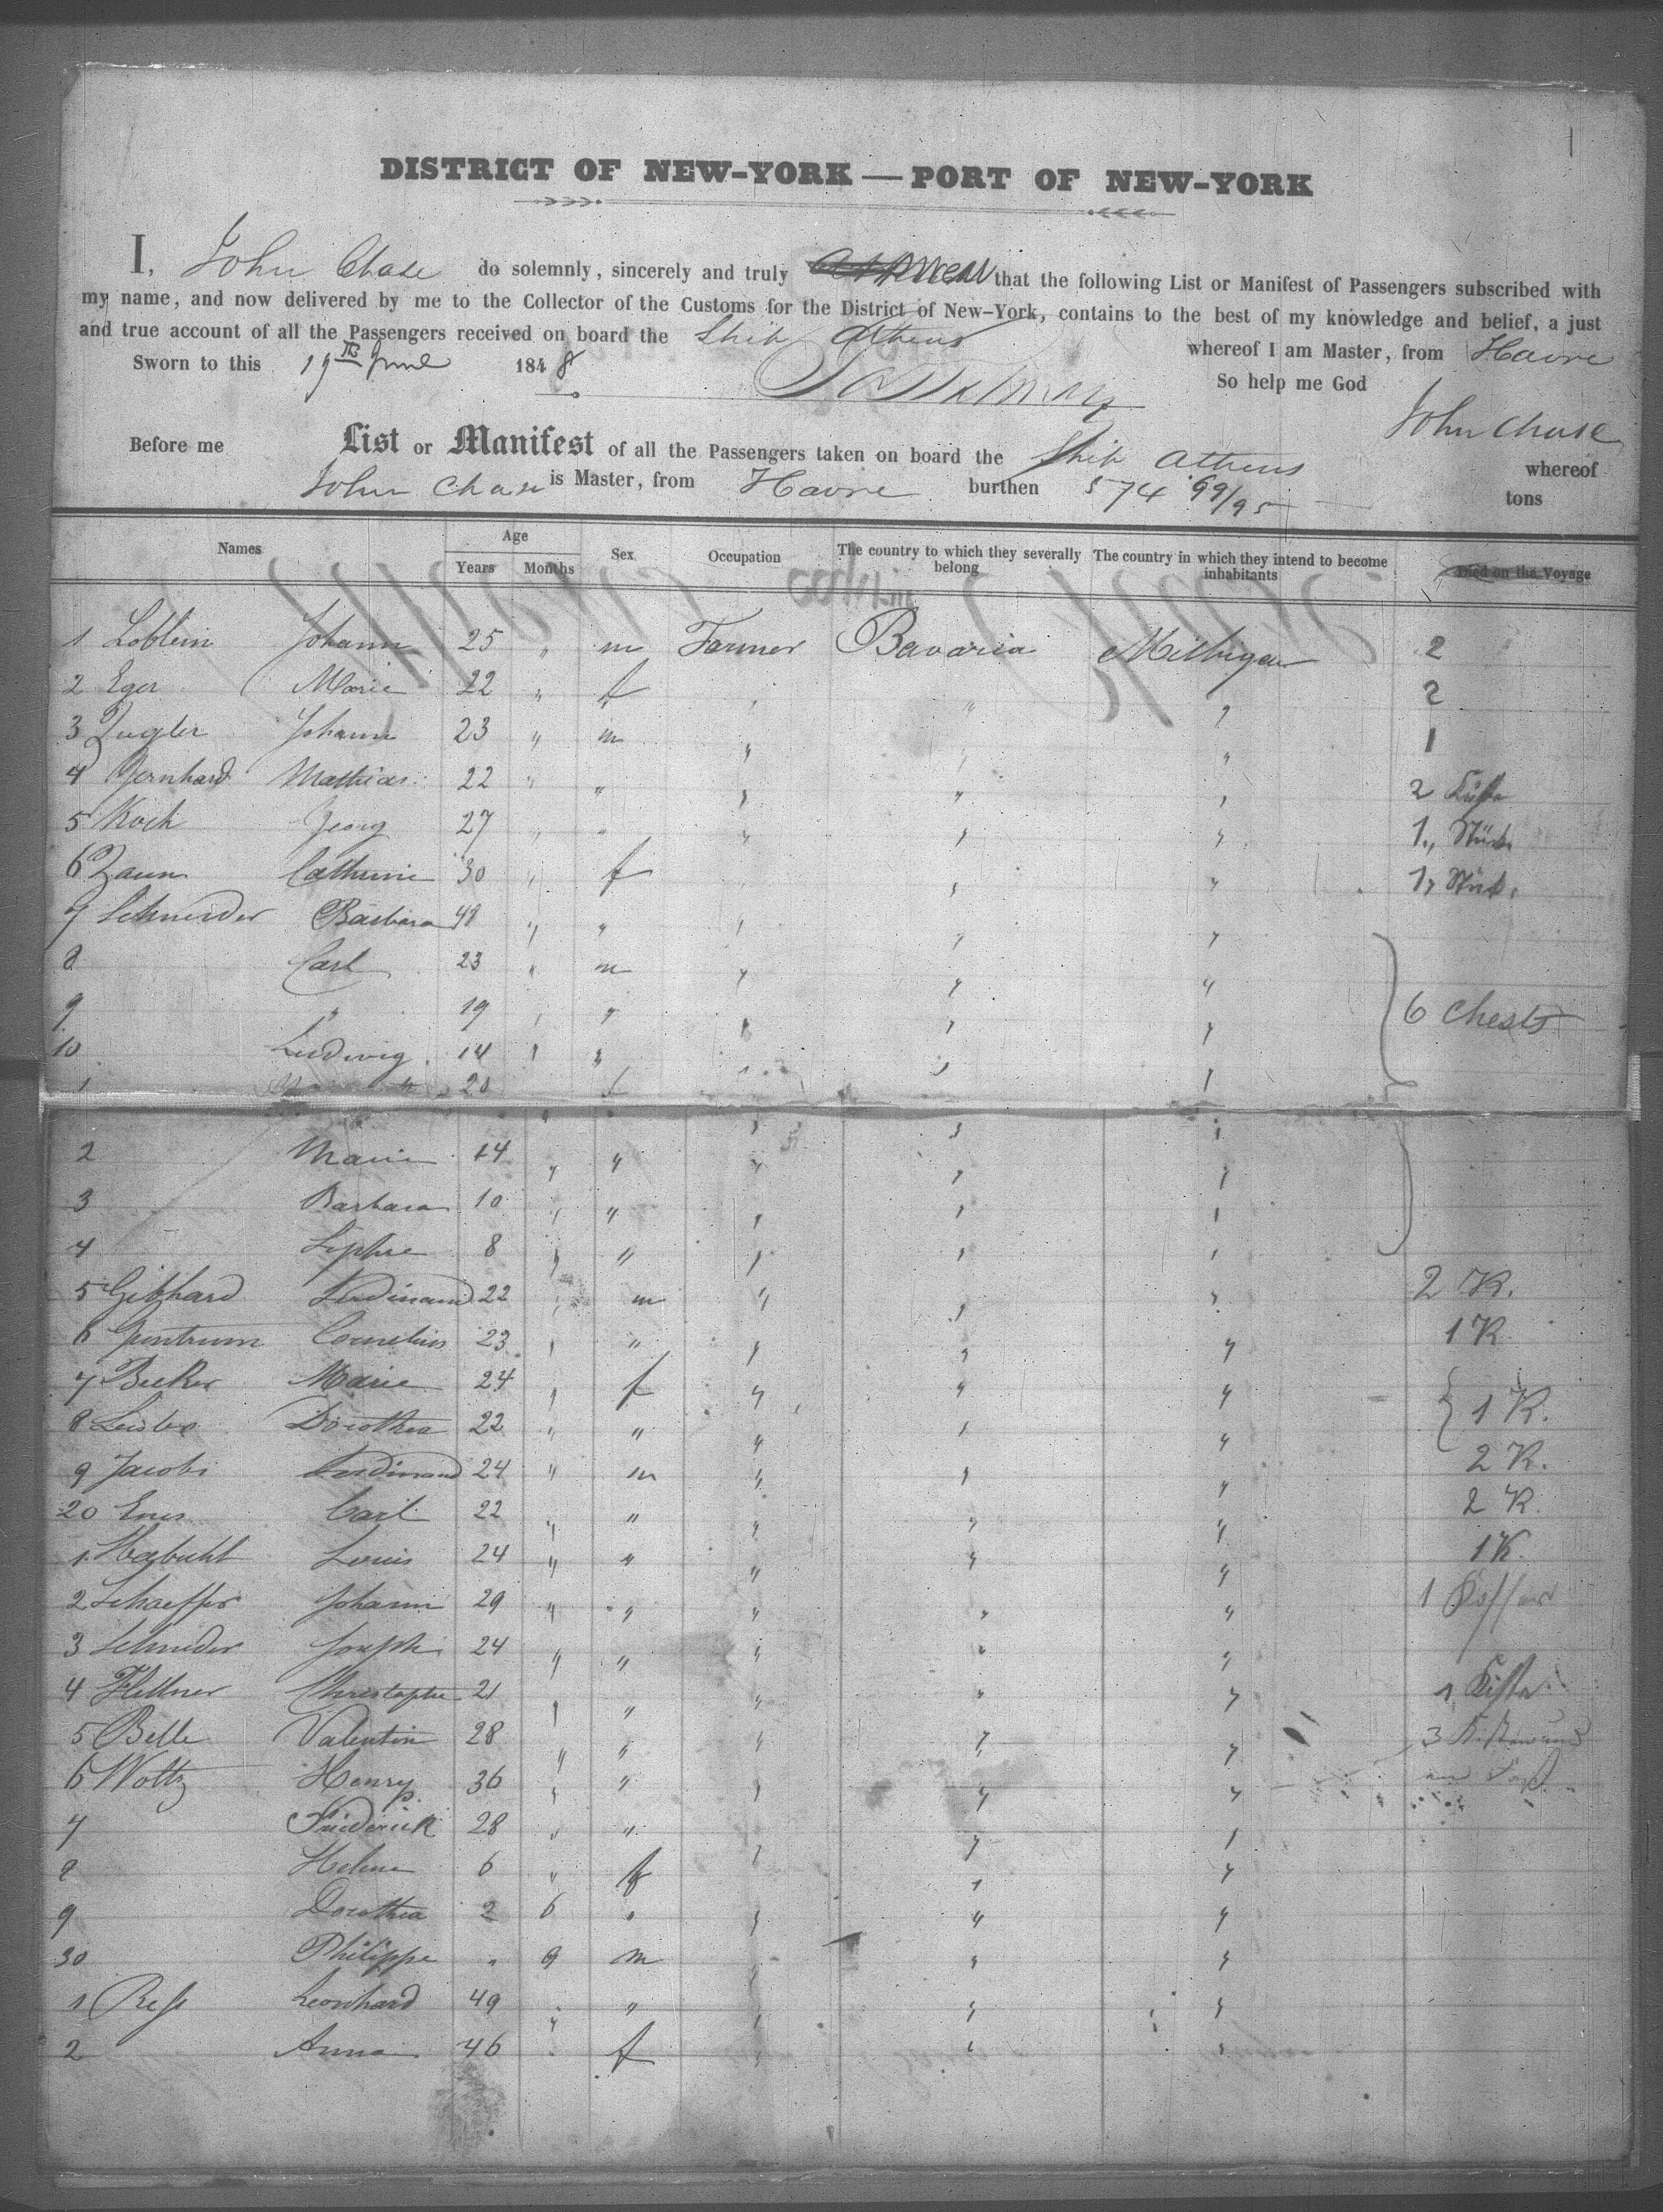 DISTRICT OF NEW-YORK — PORT OF NEW-YORK
I, John Chase do solemnly, sincerely and truly that the following List or Manifest of Passengers subscribed with
my name, and now delivered by me to the Collector of the Customs for the District of New-York, contains to the best of my knowledge and belief, a just
and true account of all the Passengers received on board the Ship Athens whereof I am Master, from Havre
Sworn to this 19th June 1848 So help me God
John Chase
Before me List or Manifest of all the Passengers taken on board the Ship Athens whereof
John Chase is Master, from Havre burthen 574 69/95 tons
Names Age Sex Occupation The country to which they severally belong The country in which they intend to become inhabitants Died on the Voyage
Years Months
1 Loblein Johann 25 " m Farmer Bavaria Michigan 2
2 Eger Marie 22 " f " " " 2
3 Johann 23 " m " " " 1
4 Gernhard Mathias 22 " " " " " 2
5 Koch Georg 27 " " " " " 1 Stück
6 Zaun Catherine 30 " f " " " 1 Stück
7 Schneider Barbara 48 " " " " "
8 Carl 23 " m " " "
9 " 19 " " " " " 6 Chests
10 Ludwig 14 " " " " "
1 20 f " " "
2 Marie 14 " " " " "
3 Barbara 10 " " " " "
4 Sophie 8 " " " " "
5 Gebhard Ferdinand 22 " m " " " 2 K.
6 Cornelius 23 " " " " " 1 K
7 Becker Marie 24 " f " " "
8 Dorothea 22 " " " " " 1 K.
9 Jacobi Ferdinand 24 " m " " " 2 K.
20 Carl 22 " " " " " 2 K.
1 Louis 24 " " " " " 1 K.
2 Schaeffer Johann 29 " " " " " 1 Koffer
3 Schneider Joseph 24 " " " " "
4 Christophe 21 " " " " " 1 Kiste
5 Belle Valentin 28 " " " " " 3
6 Woltz Henry 36 " " " " "
7 Friederick 28 " " " " "
8 Helene 6 " f " " "
9 Dorothea 2 6 " " " "
30 Philippe " 9 m " " "
1 Ress Leonhard 49 " " " " "
2 Anna 46 " f " " "